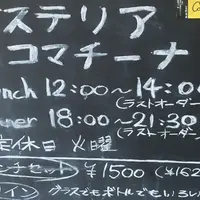 ステリア
コマチーナ
nch 12:00～14:00
(ラストオーダー
ner 18:00～21:30
(ラストオーダー
定休日 火曜
ンチセット ¥1500 (¥162
イン グラスでもボトルでもいろい